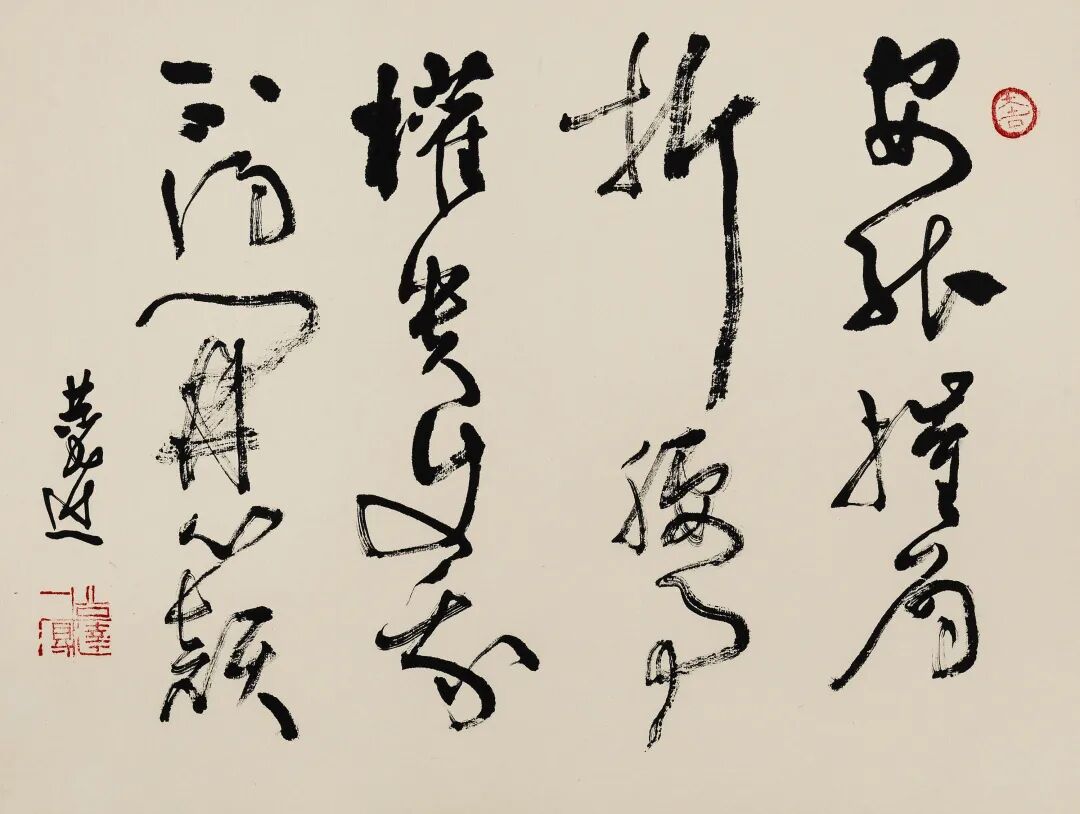 安能摧眉
折腰事
權貴使我
不得開心顏
大吉